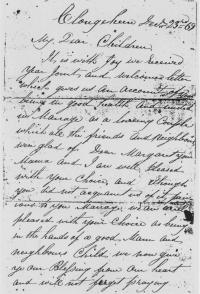 Clougeheen Decr 23rd 69
My Dear Children
It is with Joy we received
your joint and welcomed letter
which gives us an account of
being in good health and
in Marriage as a loveing Couple
which all the friends and Neighbours
were glad of. Dear Margaret your
Mama and I are well pleased
with your Choice and though
you did not acquaint us of it
to your Marriage we are
pleased with your Choice as being
in the hands of a good Man and
neighbours Child we now give
ye our Blessing from our heart
and will not forget praying